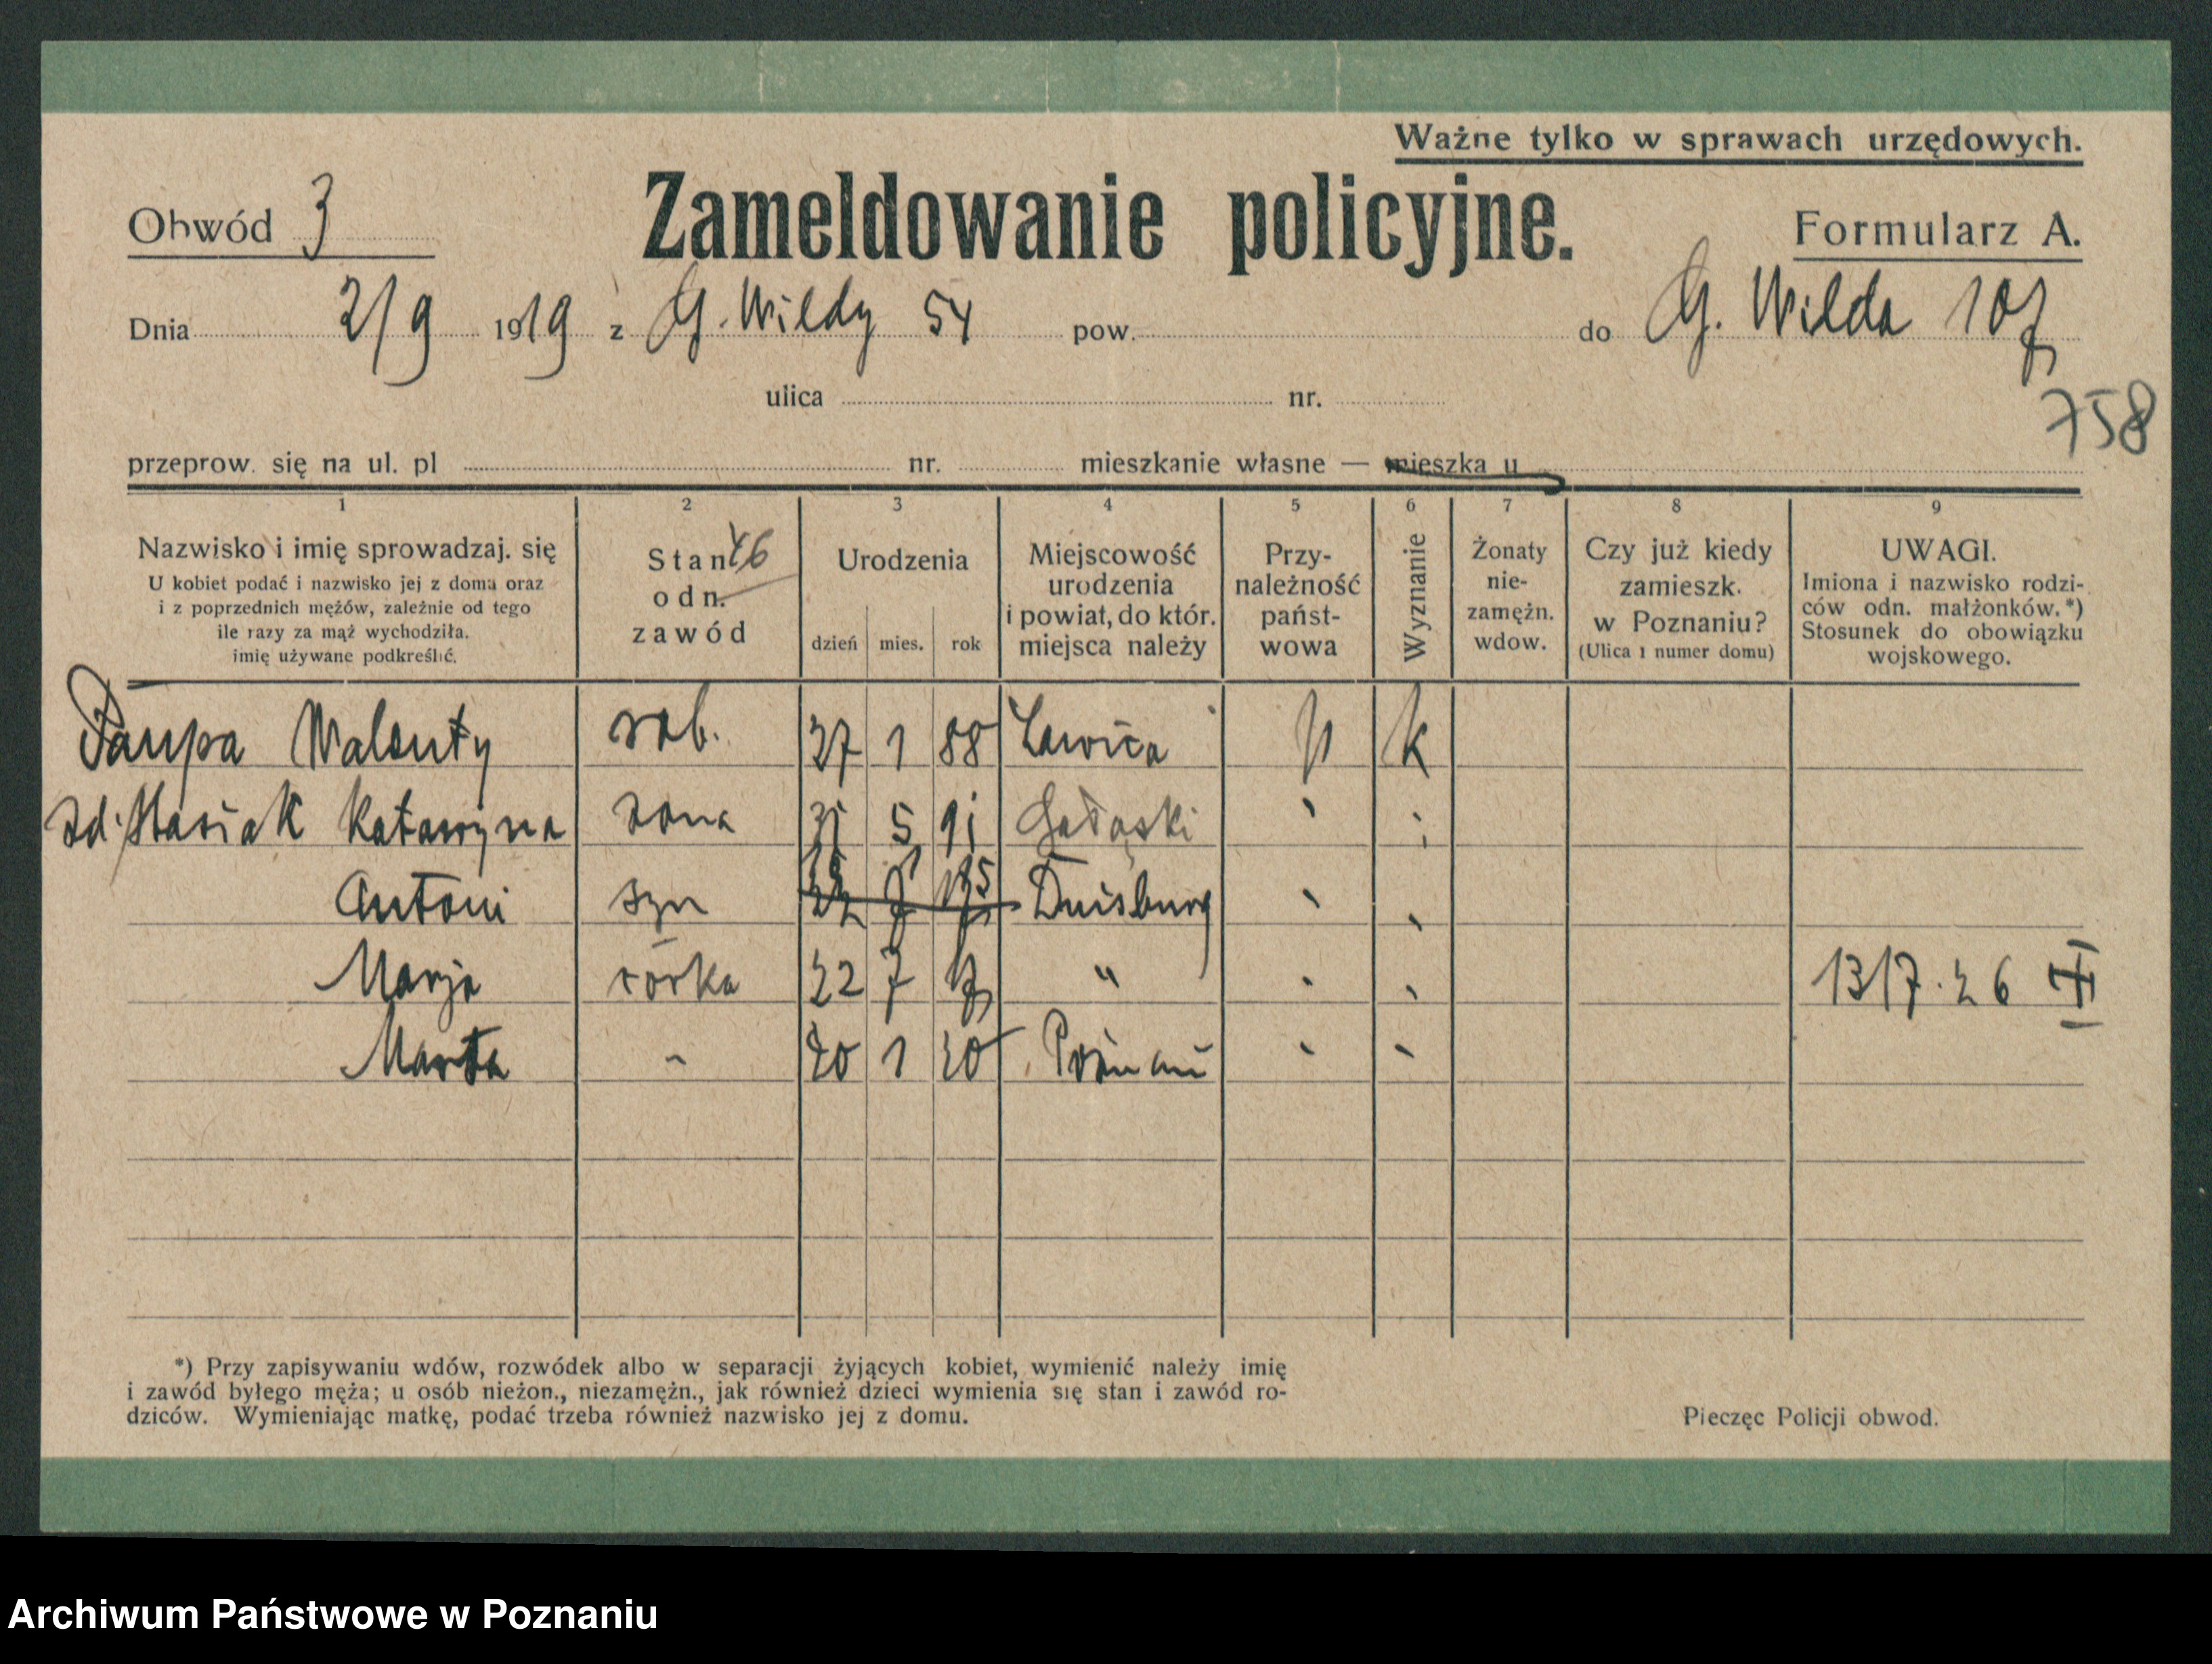 Ważne tylko w sprawach urzędowych.
Obwód 3 Zameldowanie policyjne. Formularz A.
Dnia 2/9 1919 z G. Wildy 54 pow. do G. Wilda 107
ulica nr.
758
przeprow. się na ul. pl nr. mieszkanie własne — mieszka u
1 2 3 4 5 6 7 8 9
Nazwisko i imię sprowadzaj. się
U kobiet podać i nazwisko jej z domu oraz
i z poprzednich mężów, zależnie od tego
ile razy za mąż wychodziła.
imię używane podkreślić.
Stan 46
odn.
zawód
Urodzenia
dzień mies. rok
Miejscowość
urodzenia
i powiat, do któr.
miejsca należy
Przy-
należność
państ-
wowa
Wyznanie
Żonaty
nie-
zamężn.
wdow.
Czy już kiedy
zamieszk.
w Poznaniu?
(Ulica i numer domu)
UWAGI.
Imiona i nazwisko rodzi-
ców odn. małżonków.*)
Stosunek do obowiązku
wojskowego.
Paupa Walenty rob. 27 1 88 Ławica p k
zd. Stasiak Katarzyna żona 31 5 91
Antoni syn Duisburg
Marja córka 22 7 17 " 13/7. 26 III
Marta 20 1 20 Poznań
*) Przy zapisywaniu wdów, rozwódek albo w separacji żyjących kobiet, wymienić należy imię
i zawód byłego męża; u osób nieżon., niezamężn., jak również dzieci wymienia się stan i zawód ro-
dziców. Wymieniając matkę, podać trzeba również nazwisko jej z domu.
Pieczęc Policji obwod.
Archiwum Państwowe w Poznaniu